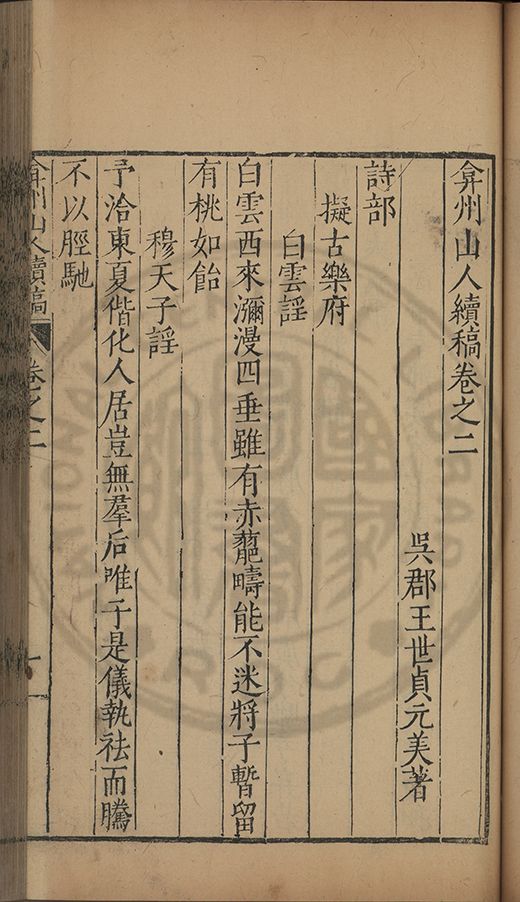 弇州山人續稿卷之二
吳郡王世貞元美著
詩部
擬古樂府
白雲謡
白雲西來瀰漫四垂雖有赤蘎疇能不迷將子暫留
有桃如飴
穆天子謡
予洽東夏偕化人居豈無羣后唯予是儀執祛而騰
不以脛馳
弇州山人續稿 卷之二 一